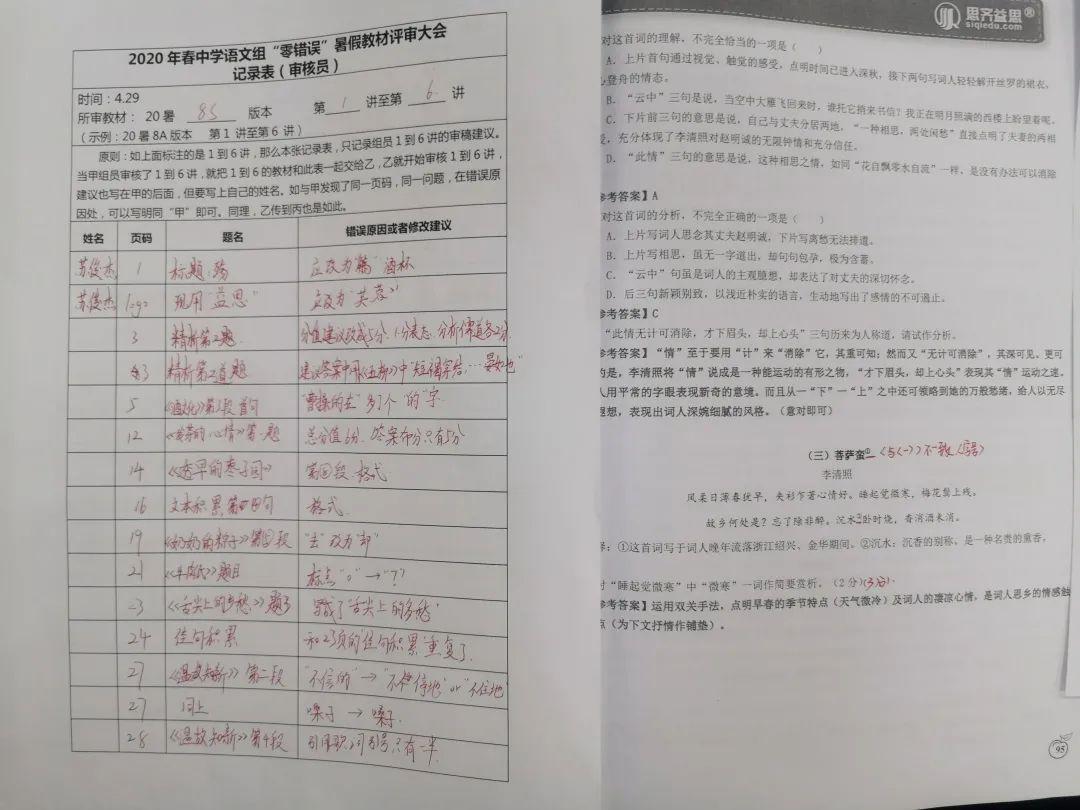 2020年春中学语文组“零错误”暑假教材评审大会
记录表（审核员）
时间：4.29
所审教材： 20暑 8S 版本 第 1 讲至第 6 讲
（示例：20暑8A版本 第1讲至第6讲）
原则：如上面标注的是1到6讲，那么本张记录表，只记录组员1到6讲的审稿建议。
当甲组员审核了1到6讲，就把1到6的教材和此表一起交给乙，乙就开始审核1到6讲，
建议也写在甲的后面，但要写上自己的姓名。如与甲发现了同一页码，同一问题，在错误原
因处，可以写明同“甲”即可。同理，乙传到丙也是如此。
姓名 页码 题名 错误原因或者修改建议
苏俊杰 1 标题 应改为 酒杯
苏俊杰 logo 现用“益思” 应改为“芙蓉”
3 精析第2题 分值建议改成5分，1分表态，分析 各2分
3 精析第2道题 建议答案中用《五柳》中“短褐穿结，…晏如也”
5 《酒文化》第2段首句 “曹操的在”多1个“的”字
12 心情》第 题 总分值6分，答案布分只有5分
14 的枣子园》 第四段 格式
16 文本积累，第四句 格式
19 《奶奶的粽子》第四段 “去”改为“却”
21 题目 标点“。”→“？”
23 《舌尖上的乡愁》题3 写成了“舌尖上的多愁”
24 佳句积累 和23页的佳句积累重复了
27 《温故知新》第二段 “不停的”→“不停地”or“不住地”
27 同上 嗓子→嗓子
28 《温故知新》第4段 引用歌词引号只有一半
思齐益思®
siqiedu.com
对这首词的理解，不完全恰当的一项是（ ）
A．上片首句通过视觉、触觉的感受，点明时间已进入深秋，接下两句写词人轻轻解开丝罗的裙衣，
登舟的情态。
B．“云中”三句是说，当空中大雁飞回来时，谁托它捎来书信？我正在明月照满的西楼上盼望着呢。
C．下片前三句的意思是说，自己与丈夫分居两地，“一种相思，两处闲愁”直接点明了夫妻的两相
爱，充分体现了李清照对赵明诚的无限钟情和充分信任。
D．“此情”三句的意思是说，这种相思之情，如同“花自飘零水自流”一样，是没有办法可以消除
参考答案】A
对这首词的分析，不完全正确的一项是（ ）
A．上片写词人思念其丈夫赵明诚，下片写离愁无法排遣。
B．上片写相思，虽无一字道出，却句句包孕，极为含蓄。
C．“云中”句虽是词人的主观臆想，却表达了对丈夫的深切怀念。
D．后三句新颖别致，以浅近朴实的语言，生动地写出了感情的不可遏止。
参考答案】C
“此情无计可消除，才下眉头，却上心头”三句历来为人称道，请试作分析。
参考答案】“情”至于要用“计”来“消除”它，其重可知；然而又“无计可消除”，其深可见。更可
的是，李清照将“情”说成是一种能运动的有形之物，“才下眉头，却上心头”表现其“情”运动之速。
人用平常的字眼表现新奇的意境。而且从一“下”一“上”之中还可领略到她的万般愁绪，给人以无尽
遐想，表现出词人深婉细腻的风格。（意对即可）
（三）菩萨蛮① 《与(一)》不一致（字号）
李清照
风柔日薄春犹早，夹衫乍著心情好。睡起觉微寒，梅花鬓上残。
故乡何处是？忘了除非醉。沉水②卧时烧，香消酒未消。
释：①这首词写于词人晚年流落浙江绍兴、金华期间。②沉水：沉香的别称，是一种名贵的熏香。
对“睡起觉微寒”中“微寒”一词作简要赏析。（2分）（3分）
参考答案】运用双关手法，点明早春的季节特点（天气微冷）及词人的凄凉心情，是词人思乡的情感触
点（为下文抒情作铺垫）。
95